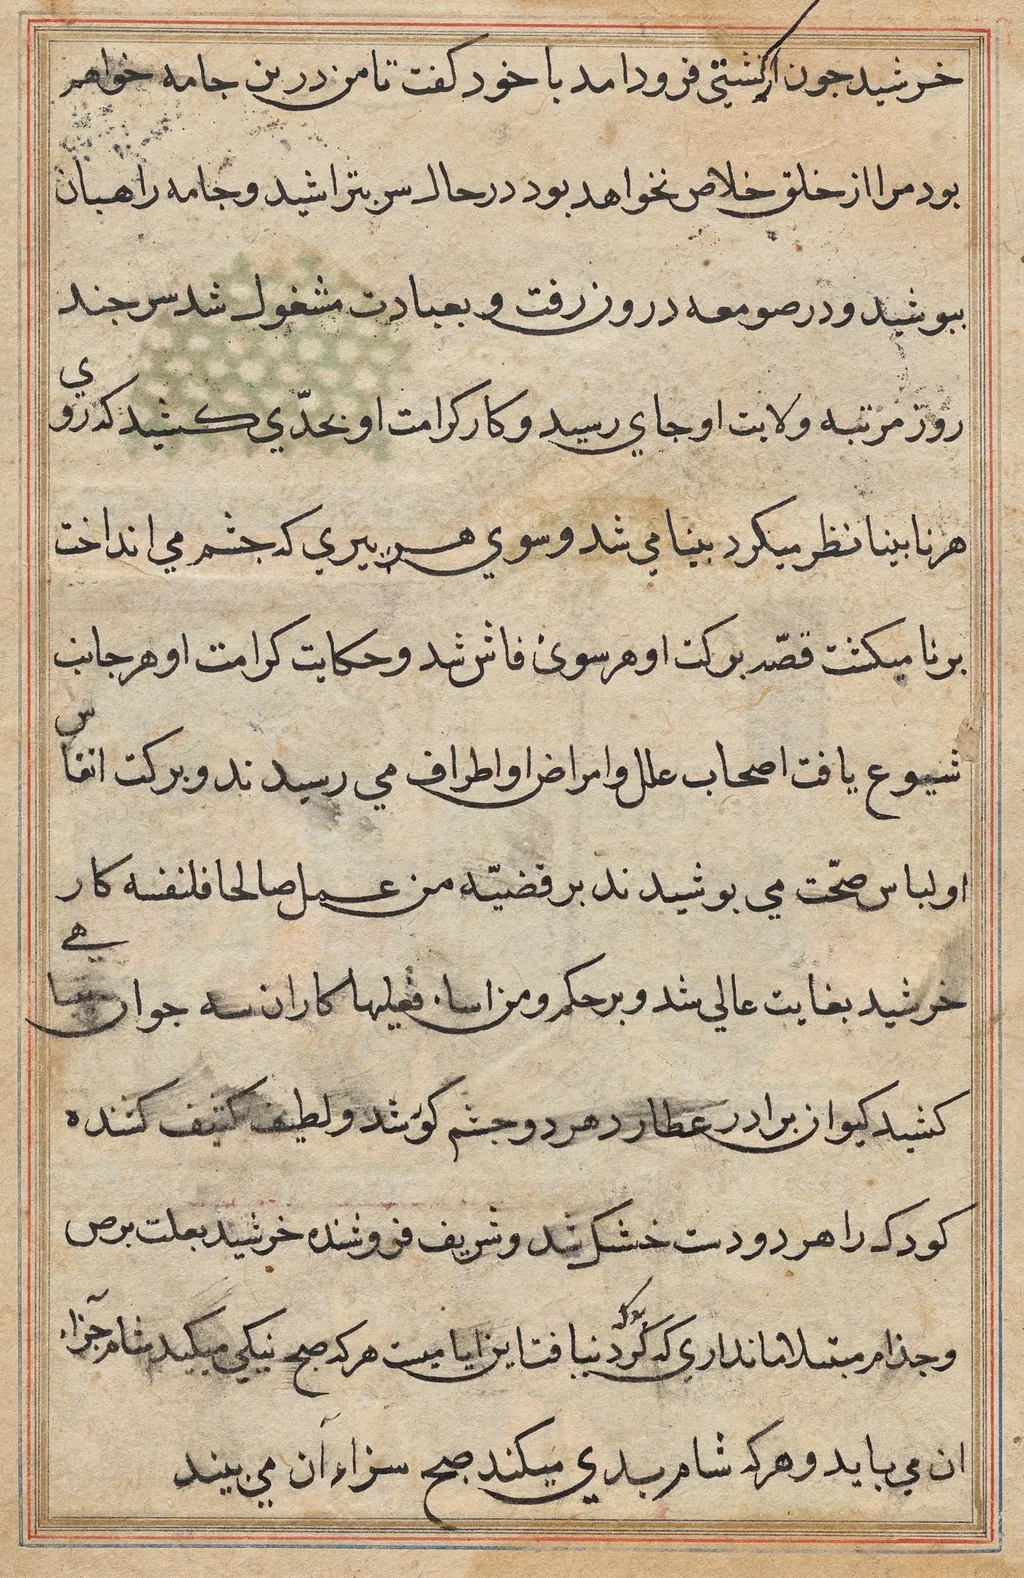 خرشید جون از کشتی فرود امد با خود کفت تا من درین جامه خواهم
بود مرا از خلق خلاص نخواهد بود در حال سر بتراشید و جامه راهبان
ببوشید و در صومعه درون رفت و بعبادت مشغول شد سر جند
روز مرتبه ولایت او جای رسید و کار کرامت او بحدّی کشید که روی
هر نابینا نظر میکرد بینا می شد و سوی هر بیری که جشم می انداخت
برنا میکشت قصّه برکت او هر سوئ فاش شد و حکایت کرامت او هر جانب
شیوع یافت اصحاب علل و امراض او اطراف می رسیدند و برکت انفاس
او لباس صحّت می بوشیدند بر قضیّه من عمل صالحا فلنفسه کار
خرشید بغایت عالی شد و بر حکم و من اساء فعلیها کار ان سه جوان سیاهی
کشید کیوان برادر عطارد هر دو جشم کور شد و لطیف کثیف کشنده
کودک را هر دو دست خشک شد و شریف فروشنده خرشید بعلت برص
و جذام مبتلا ماند اری که کرد که نیافت این ایامیست هر که صبح نیکی میکند شام جزاء
ان می یابد و هر که شام بدی میکند صبح سزاء آن می بیند